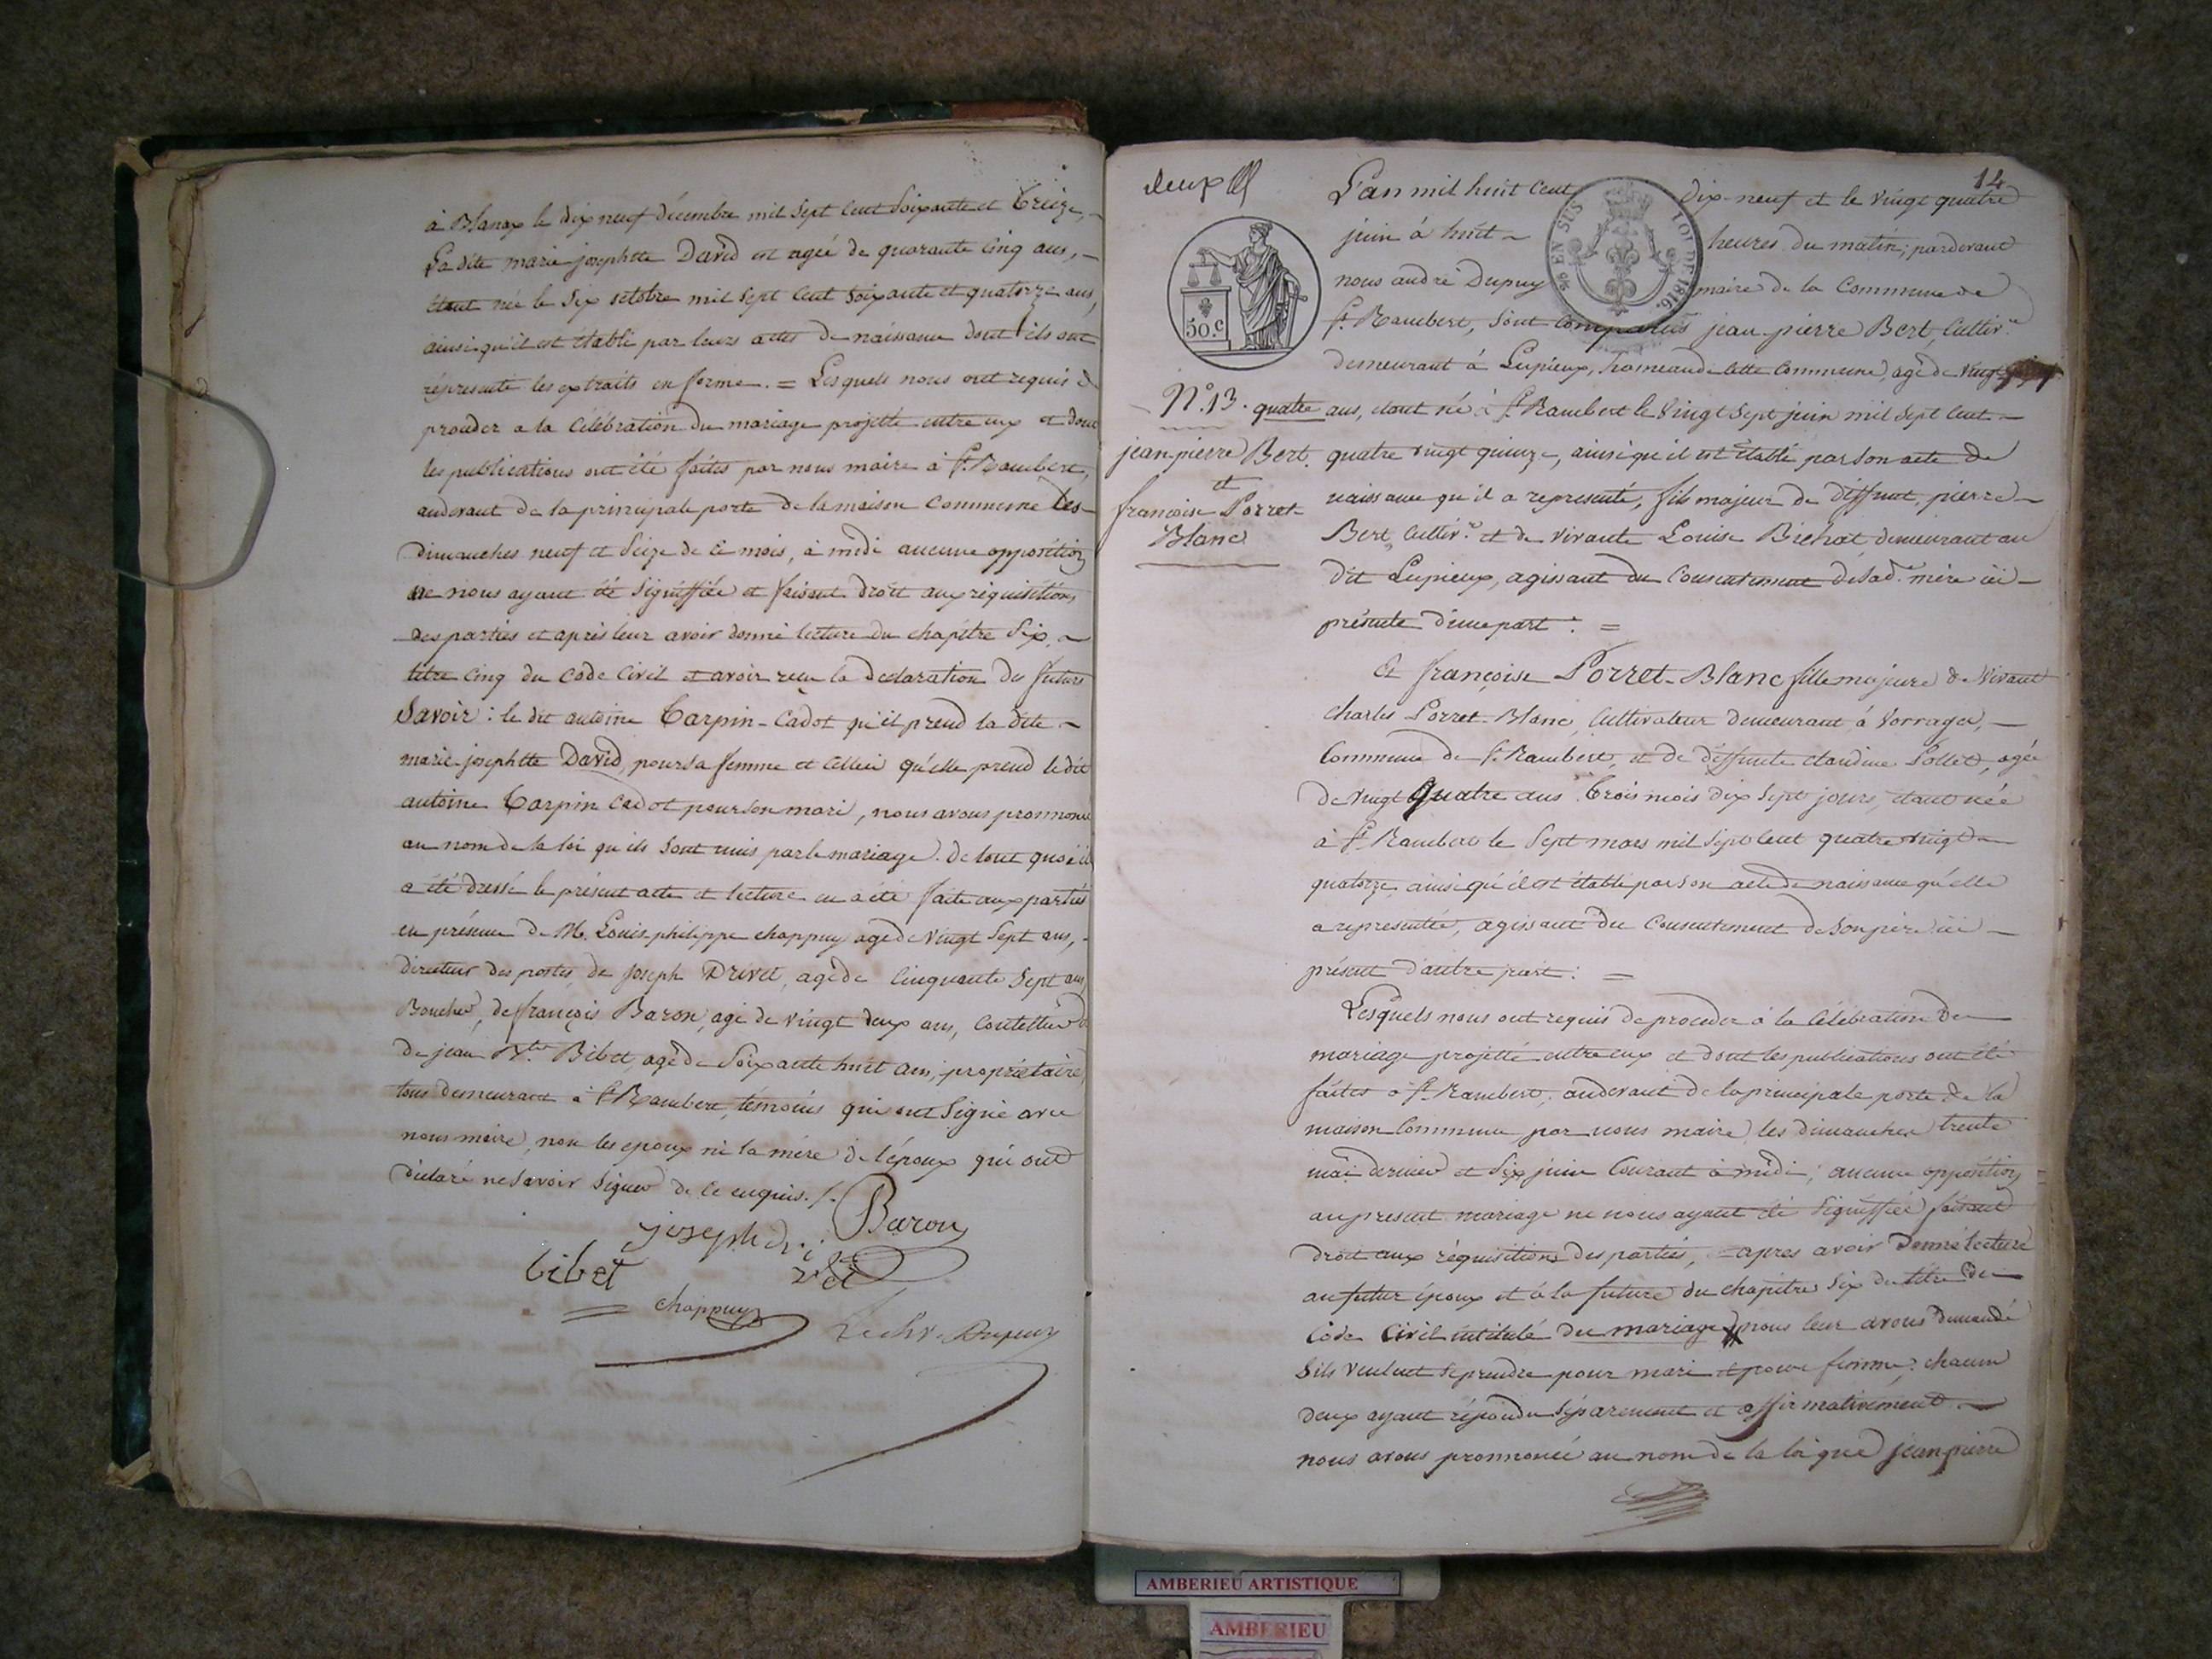 à Blanaz le dix neuf décembre mil sept cent soixante et treize,
La dite marie josephtte David est agée de quarante cinq ans,
étant née le six octobre mil sept cent soixante et quatorze ans,
ainsi qu'il est établi par leurs actes de naissance dont ils ont
réprésenté les extraits en forme. = Lesquels nous ont requis de
proceder a la célébration du mariage projetté entre eux et dont
les publications ont été faites par nous maire à St. Rambert,
audevant de la principale porte de la maison commune les
dimanches neuf et seize de ce mois, à midi aucune opposition
ne nous ayant été signiffiée et faisant droit aux réquisitions
des parties et après leur avoir donné lecture du chapitre six,
titre cinq du code civil et avoir reçu la declaration des futurs
Savoir : le dit antoine Carpin-Cadot qu'il prend la dite
marie-josephtte David, pour sa femme et celleci qu'elle prend le dit
antoine Carpin Cadot pour son mari, nous avons prononcé
au nom de la loi qu'ils sont unis par le mariage. de tout quoi il
a été dressé le présent acte et lecture en a été faite aux parties
en présence de M. Louis-philippe chappuy agé de vingt sept ans,
directeur des postes, de joseph Drivet, agé de cinquante sept ans
Boucher, de françois Baron, agé de vingt deux ans, coutellier et
de jean Bte. Bibet, agé de soixante huit ans, propriétaire,
tous demeurant à St. Rambert, témoins qui ont signé avec
nous maire, non les epoux ni la mère de l'époux qui ont
déclaré ne savoir signer de ce enquis ./.
Baron
joseph drivet
bibet
chappuy
Le chr. Dupuy
deux
14
L'an mil huit cent dix-neuf et le vingt quatre
juin à huit heures du matin; pardevant
nous andré Dupuy maire de la Commune de
St. Rambert, sont comparus jean-pierre Bert, cultivr.
demeurant à Lupieux, hameau de cette commune, agé de vingt
EN SUS
LOI DE 1816.
50.c
N.° 13. quatre ans, étant né à St. Rambert le vingt sept juin mil sept cent
jean-pierre Bert. quatre vingt quinze, ainsi qu'il est établi par son acte de
et
françoise Porret-
Blanc
naissance qu'il a representé, fils majeur de deffunt, pierre
Bert, cultivr. et de vivante Louise Bichat, demeurant au
dit Lupieux, agissant du consentement de sad. mère ici
présente d'une part : =
Et françoise Porret-Blanc fille majeure de vivant
charles Porret-Blanc, cultivateur demeurant à Vorrages,
commune de St. Rambert, et de deffunte claudine Pollet, agée
de vingt quatre ans trois mois dix sept jours, étant née
à St. Rambert le sept mars mil sept cent quatre vingt
quatorze, ainsi qu'il est établi par son acte de naissance qu'elle
a représenté, agissant du consentement de son père ici
présent d'autre part : =
Lesquels nous ont requis de proceder à la célébration du
mariage projetté entre eux et dont les publications ont été
faites à St. Rambert, audevant de la principale porte de la
maison commune par nous maire, les dimanches trente
mai dernier et six juin courant à midi ; aucune opposition
au present mariage ne nous ayant été signiffiée faisant
droit aux réquisitions des parties, apres avoir donné lecture
au futur époux et à la future du chapitre six du titre du
code civil intitulé du mariage, nous leur avons demandé
s'ils veulent se prendre pour mari et pour femme : chacun
deux ayant répondu séparement et affirmativement
nous avons prononcé au nom de la loi que jean pierre
AMBERIEU ARTISTIQUE
AMBERIEU